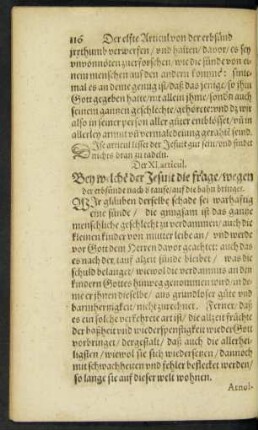 116 Der elffte Articul von der erbsünd
jrrthumb verwerffen / vnd halten / davor / es sey
vnvonnöten zu erforschen / wie die sünde von ei-
nem menschen auf den andern komme: sinte-
mal es an deme genug ist / daß das jenige / so jhm
Gott gegeben hatte / mit allein jhme / sondn auch
seinem gantzen geschlechte / gehörete / vnd dz wir
also in seiner person aller güter entblösset / vn in
allerley armut vn vermaledeiung gerahtẽ seynd.
Diese articul lisset der Jesuit gut sein / vnd findet
nichts dran zu tadeln.
Der XI. articul.
Bey welche der Jesuit die fråge / wegen
der erbsünde nach d taufe / auf die bahn bringet.
Wir glåuben derselbe schade sei warhafftig
eine sünde / die gnugsam ist das gantze
menschliche geschlecht zu verdammen / auch die
kleinen kinder von mutter leibe an / vnd werde
vor Gott dem Herren davor geachtet: auch das
es nach der tauf alzeit sünde bleibet / was die
schuld belanget / wiewol die verdamnus an den
kindern Gottes hinweg genommen wird / in de-
me er jhnen dieselbe / aus grundloser güte vnd
barmhertzigkeit / nicht zurechnet. Ferner / daß
es ein solche verkehrte art ist / die allzeit früchte
der boßheit vnd wiederspenstigkeit wieder Gott
vorbringet / dergestalt / daß auch die allerhei-
ligsten / wiewol sie sich wiedersetzen / dannoch
mit schwachheiten vnd fehler beflecket werden /
so lange sie auf dieser welt wohnen.
Arnol-